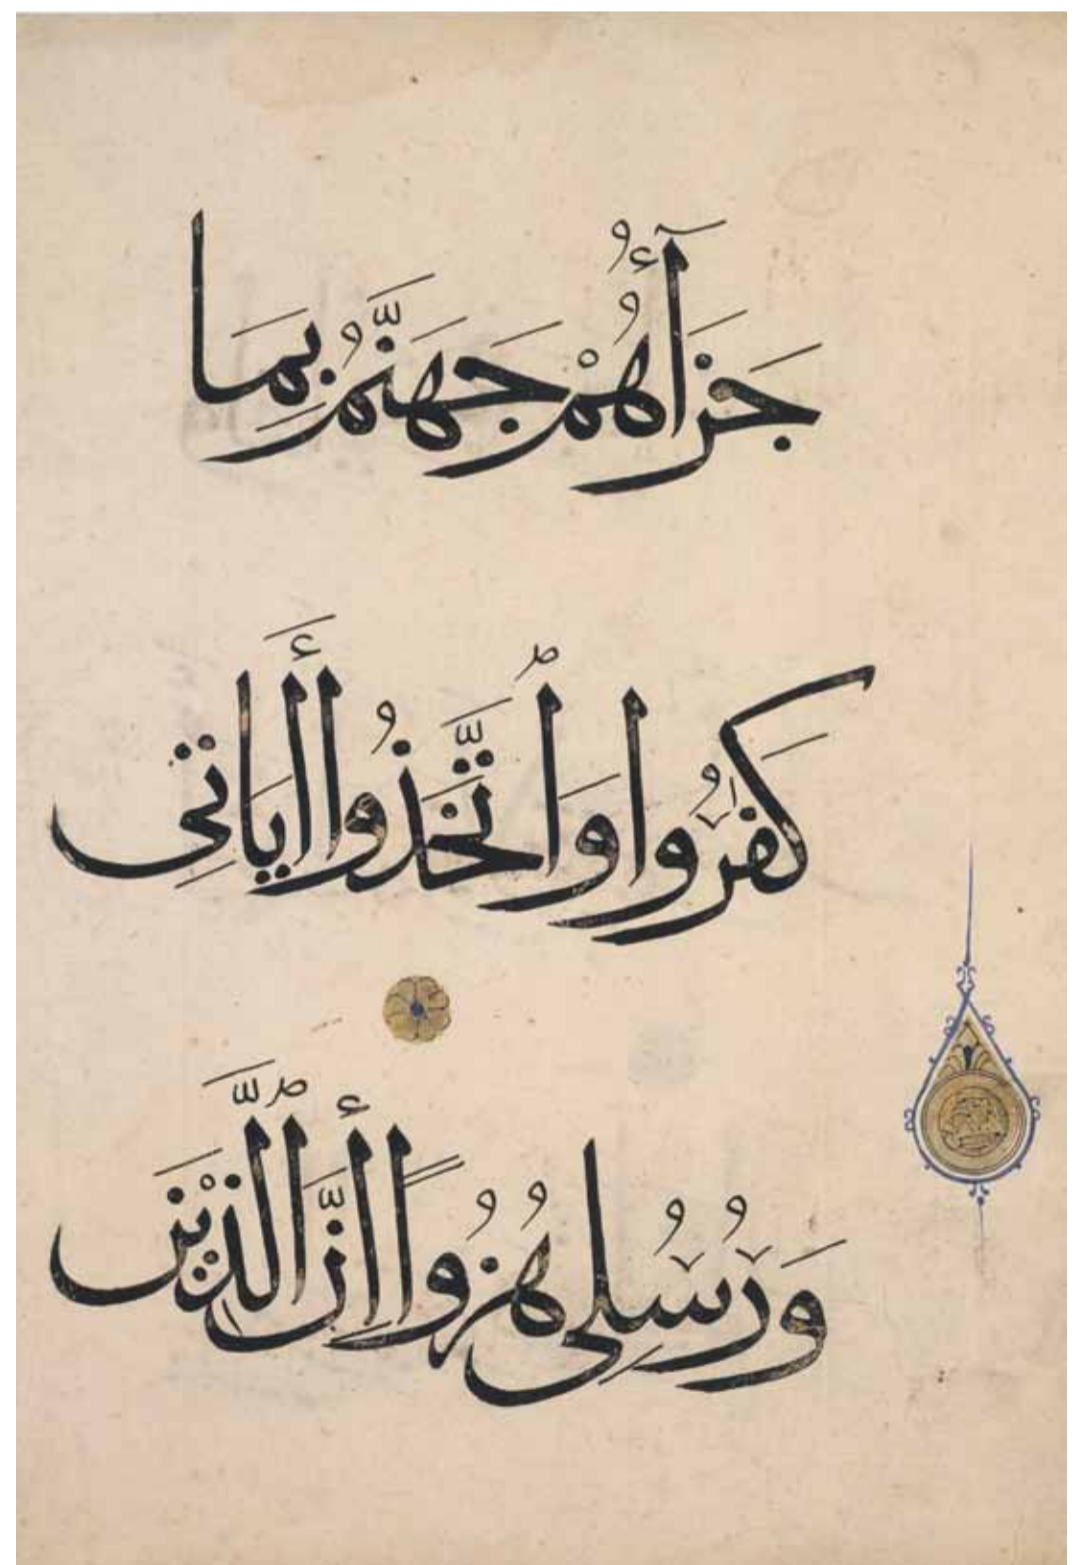 جَزَآءُهُمْ جَهَنَّمُ بِمَا
كَفَرُوا وَٱتَّخَذُوا أَايَاتِى
وَرُسُلِى هُزُوًا أِنَّ ٱلَّذِيْنَ